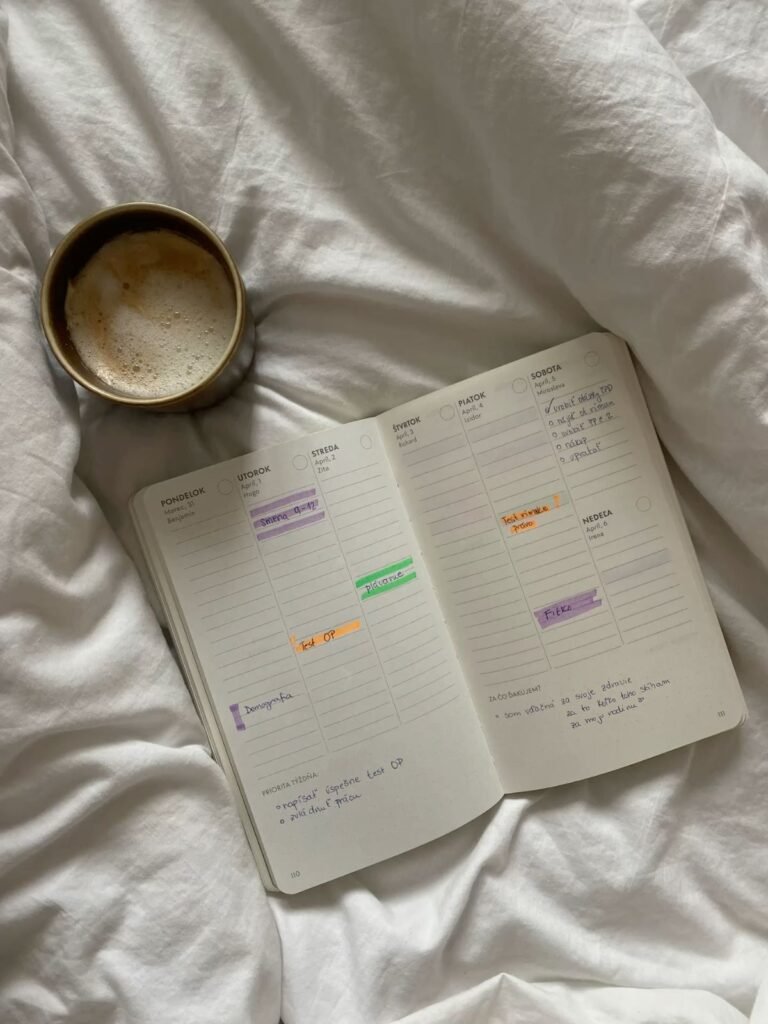 PONDELOK
Marec, 31
Benjamín
Domografia
UTOROK
Apríl, 1
Hugo
Smena 9-12
Test OP
STREDA
Apríl, 2
Zita
plávanie
PRIORITA TÝŽDŇA:
napísať úspešne test OP
zvládnuť prácu
110
ŠTVRTOK
Apríl, 3
Richard
PIATOK
Apríl, 4
Izidor
Test rímske
právo
Fitko
SOBOTA
Apríl, 5
Miroslava
urobiť otázky
nájsť
urobiť
nákup
upratať
NEDEĽA
Apríl, 6
Irena
ZA ČO ĎAKUJEM?
som vďačná za svoje zdravie
za to koľko toho stíham
za moju rodinu
111